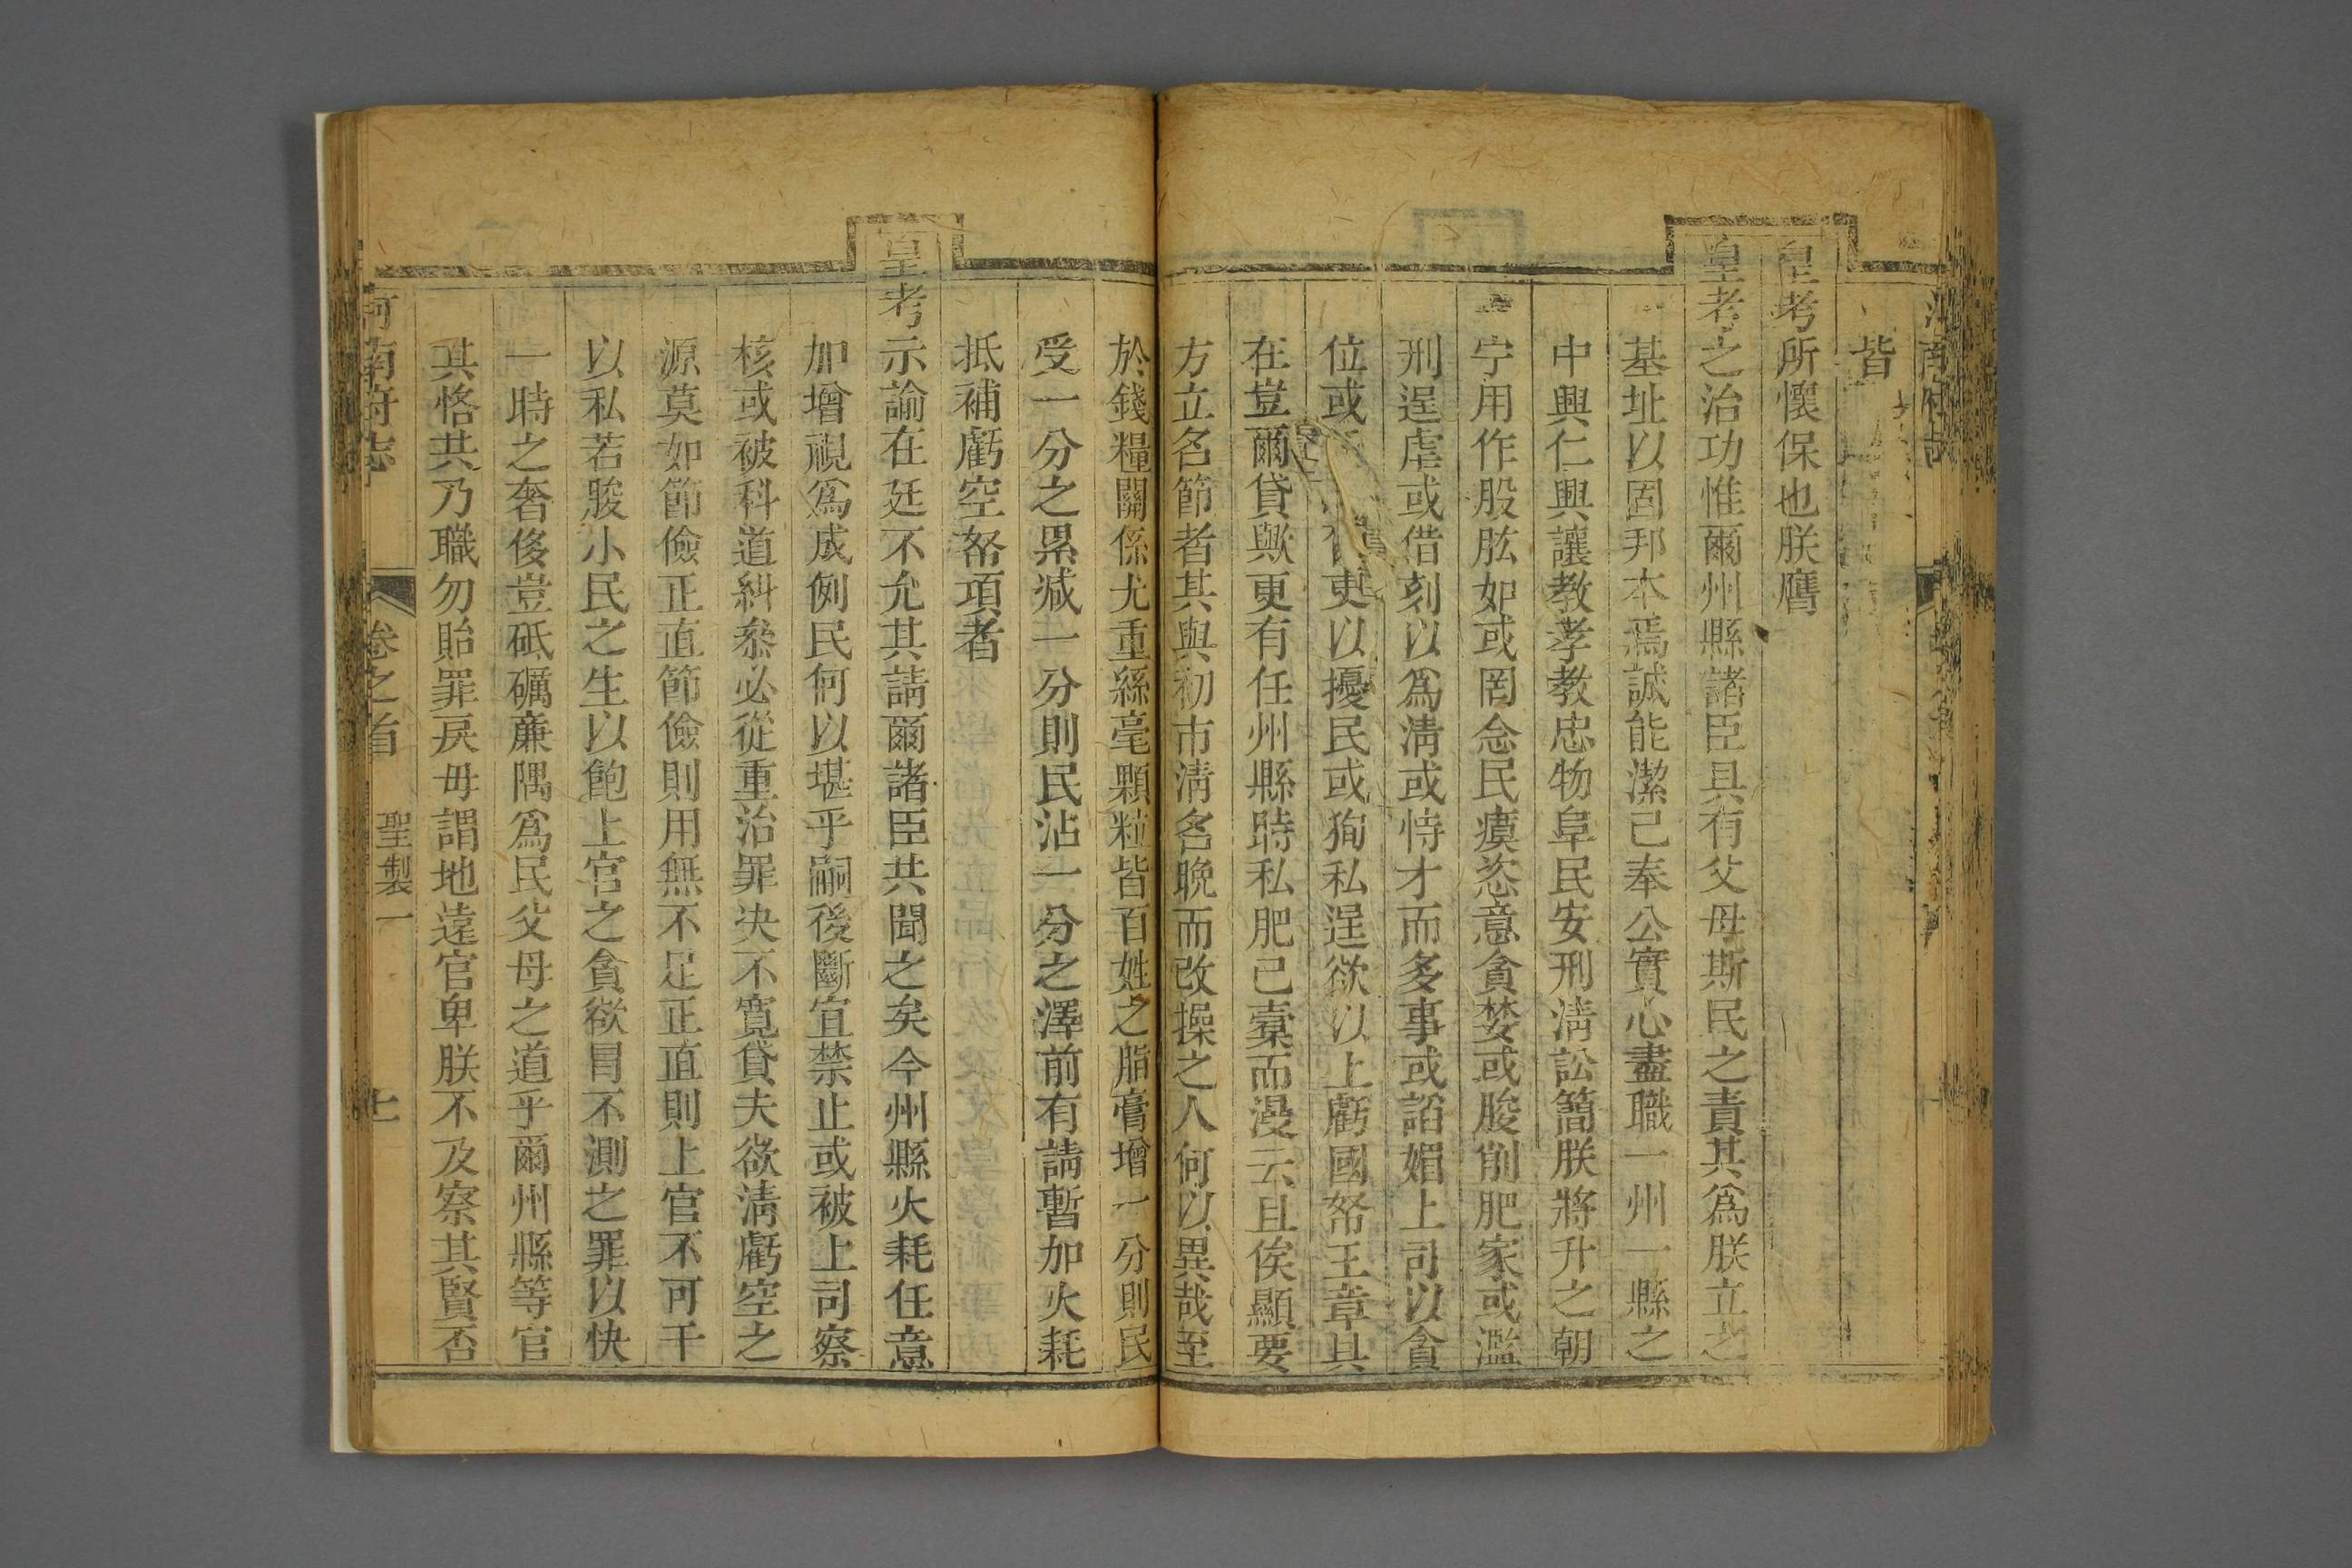 皆
皇考所懷保也朕膺
皇考之治功惟爾州縣諸臣具有父母斯民之責其爲朕立之
基址以固邦本焉誠能潔己奉公實心盡職一州一縣之
中興仁興讓教孝教忠物阜民安刑淸訟簡朕將升之朝
宁用作股肱如或罔念民瘼恣意貪婪或朘削肥家或濫
刑逞虐或借刻以爲淸或恃才而多事或諂媚上司以貪
位或更以擾民或狥私逞欲以上虧國帑王章具
在豈爾貸歟更有任州縣時私肥己橐而漫云且俟顯要
方立名節者其與初市淸名晩而改操之人何以異哉至
於錢糧關係尤重絲毫顆粒皆百姓之脂膏增一分則民
受一分之累減一分則民沾一分之澤前有請暫加火耗
抵補虧空帑項者
皇考示諭在廷不允其請爾諸臣共聞之矣今州縣火耗任意
加增視爲成例民何以堪乎嗣後斷宜禁止或被上司察
核或被科道糾叅必從重治罪决不寬貸夫欲淸虧空之
源莫如節儉正直節儉則用無不足正直則上官不可干
以私若朘小民之生以飽上官之貪欲冒不測之罪以快
一時之奢侈豈砥礪廉隅爲民父母之道乎爾州縣等官
其恪共乃職勿貽罪戾毋謂地遠官卑朕不及察其賢否
河南府志 卷之首 聖製一